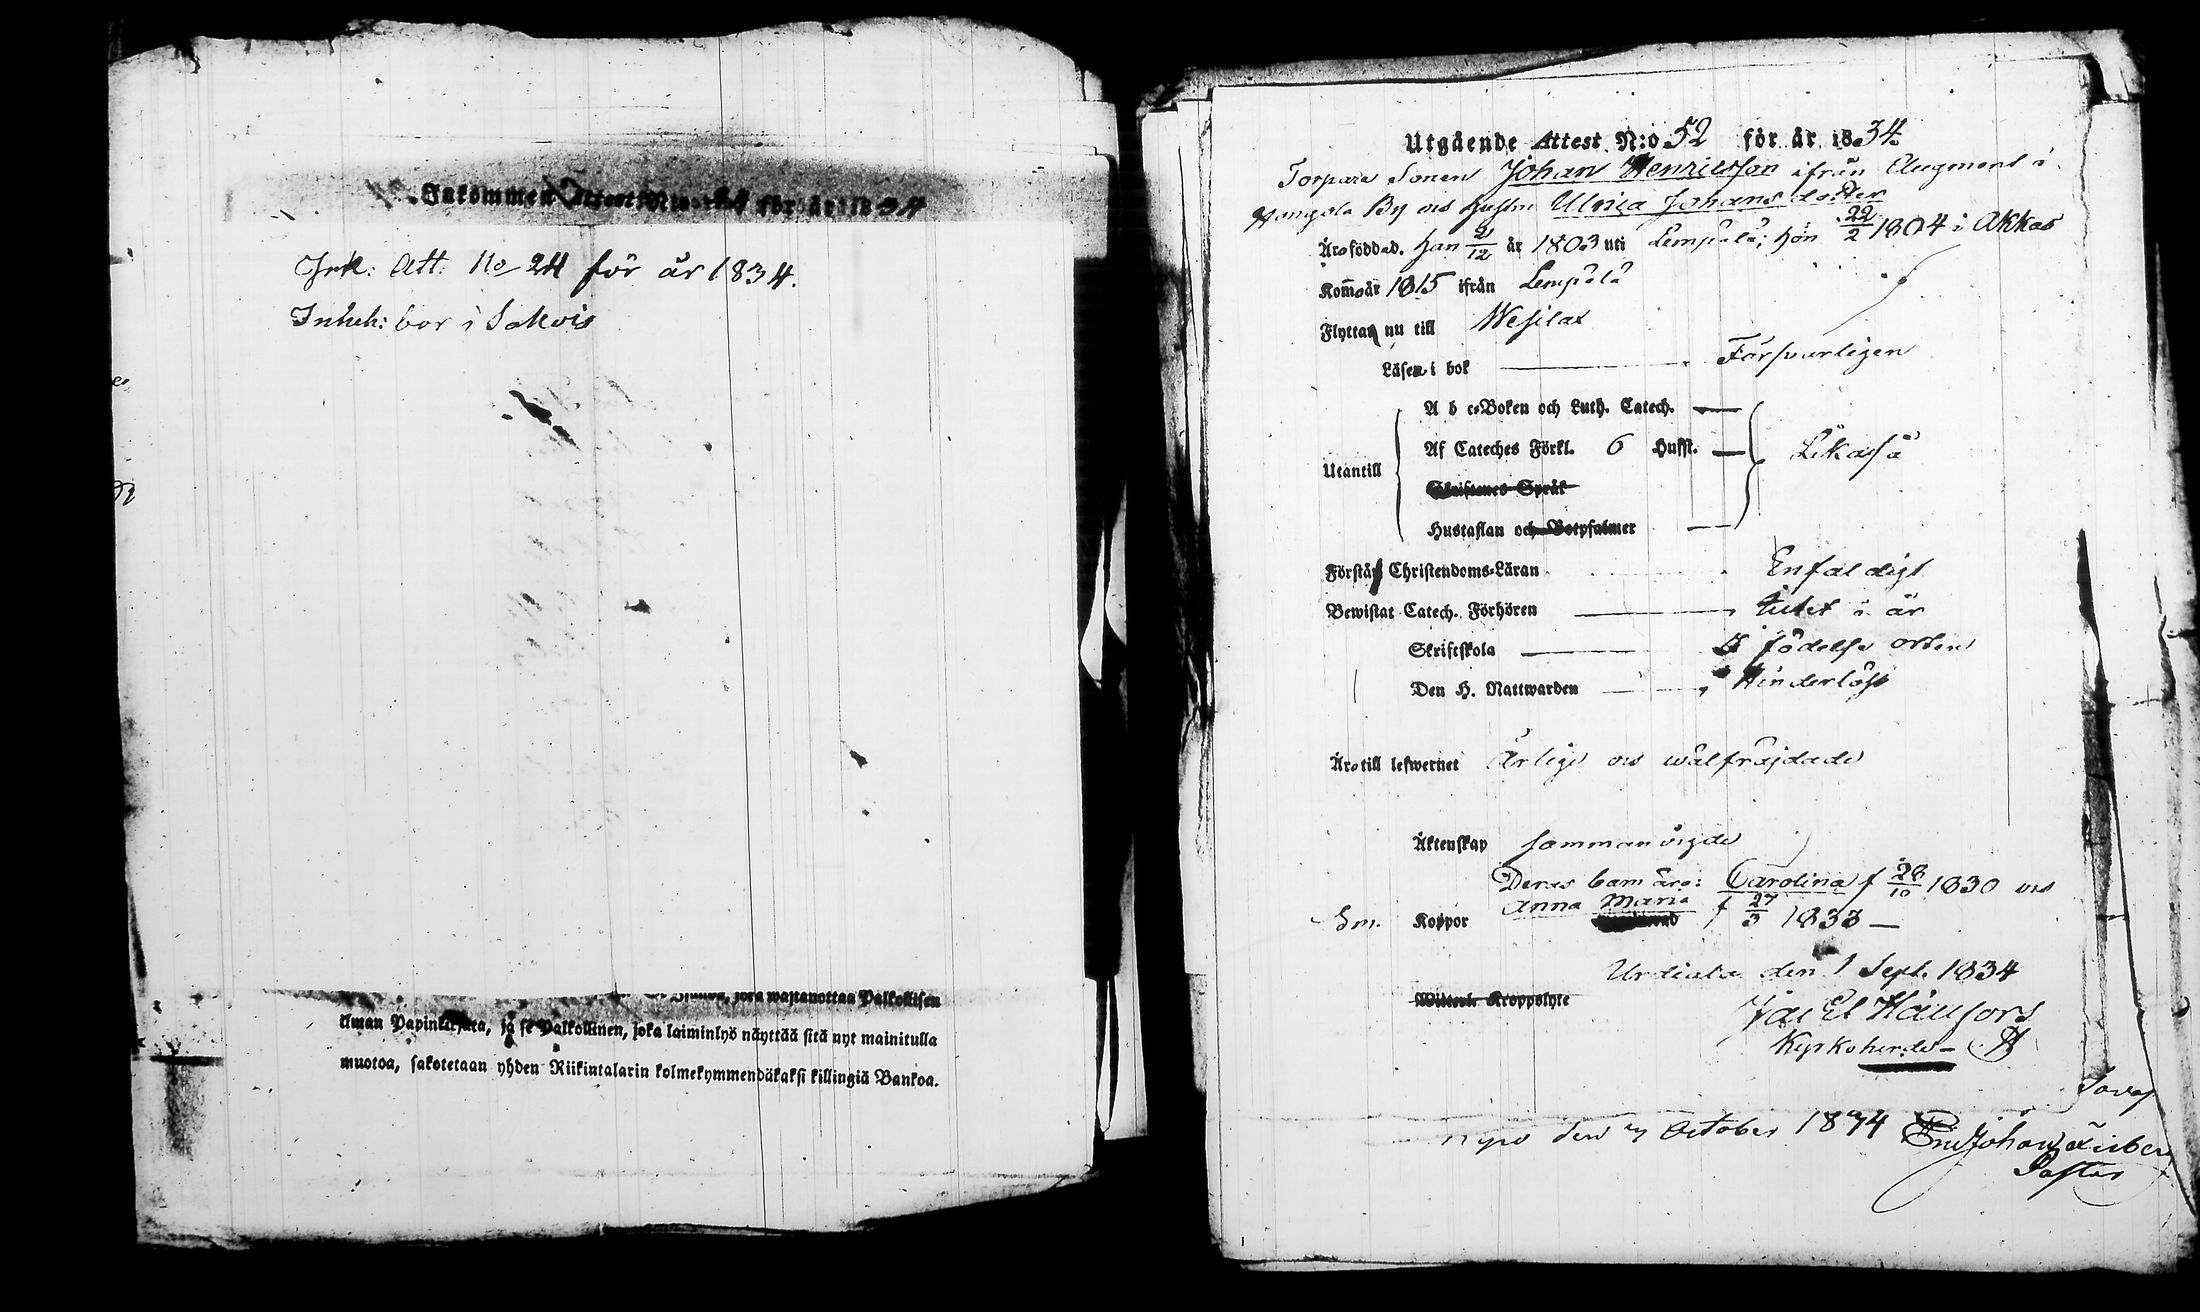 Inkommen Attest N:o 24 för år 1834
Ink: Att: No 24 för år 1834.
Inneh: bor i Sakois
joka wastanottaa Palkollisen
ilman Papinkirjata, ja se Palkollinen, joka laiminlyö näyttää sitä nyt mainitulla
muotoa, sakotetaan yhden Riikintalarin kolmekymmendäkaksi killingiä Bankoa.
Utgående Attest N:o 52 för år 1834.
Torpare Sonen Johan Henriksson ifrån Augment i
Hongola By och hustru Ulrica Johans dotter
Äro födde. han 2/12 år 1803 uti Lempälä; hon 22/2 1804 i Akkas
Kom̅o år 1815 ifrån Lempälä
Flytta nu till Wesilax
Läsa i bok Försvarligen
A b c-Boken och Luth. Catech.
Af Cateches Förkl. 6 Hufst. Likaså
Utantill
Skriftenes Språk
Hustaflan och Botpsalmer
Förstå Christendoms-Läran Enfaldigt
Bewistat Catech. Förhören sistet i år
Skriftskola I födelse orten
Den H. Nattwarden Hinderlöst
Äro till lefwernet Ärlige och wälfräjdade
Äktenskap sammanvigde
Deras barn äro: Carolina f 28/10 1830 och
Anna Maria f 27/3 1833
Sm. Koppor
Urdiala den 1 Sept. 1834
Kroppslyte
Kyrkoherde
den 7 October 1834
Johan
Pastor